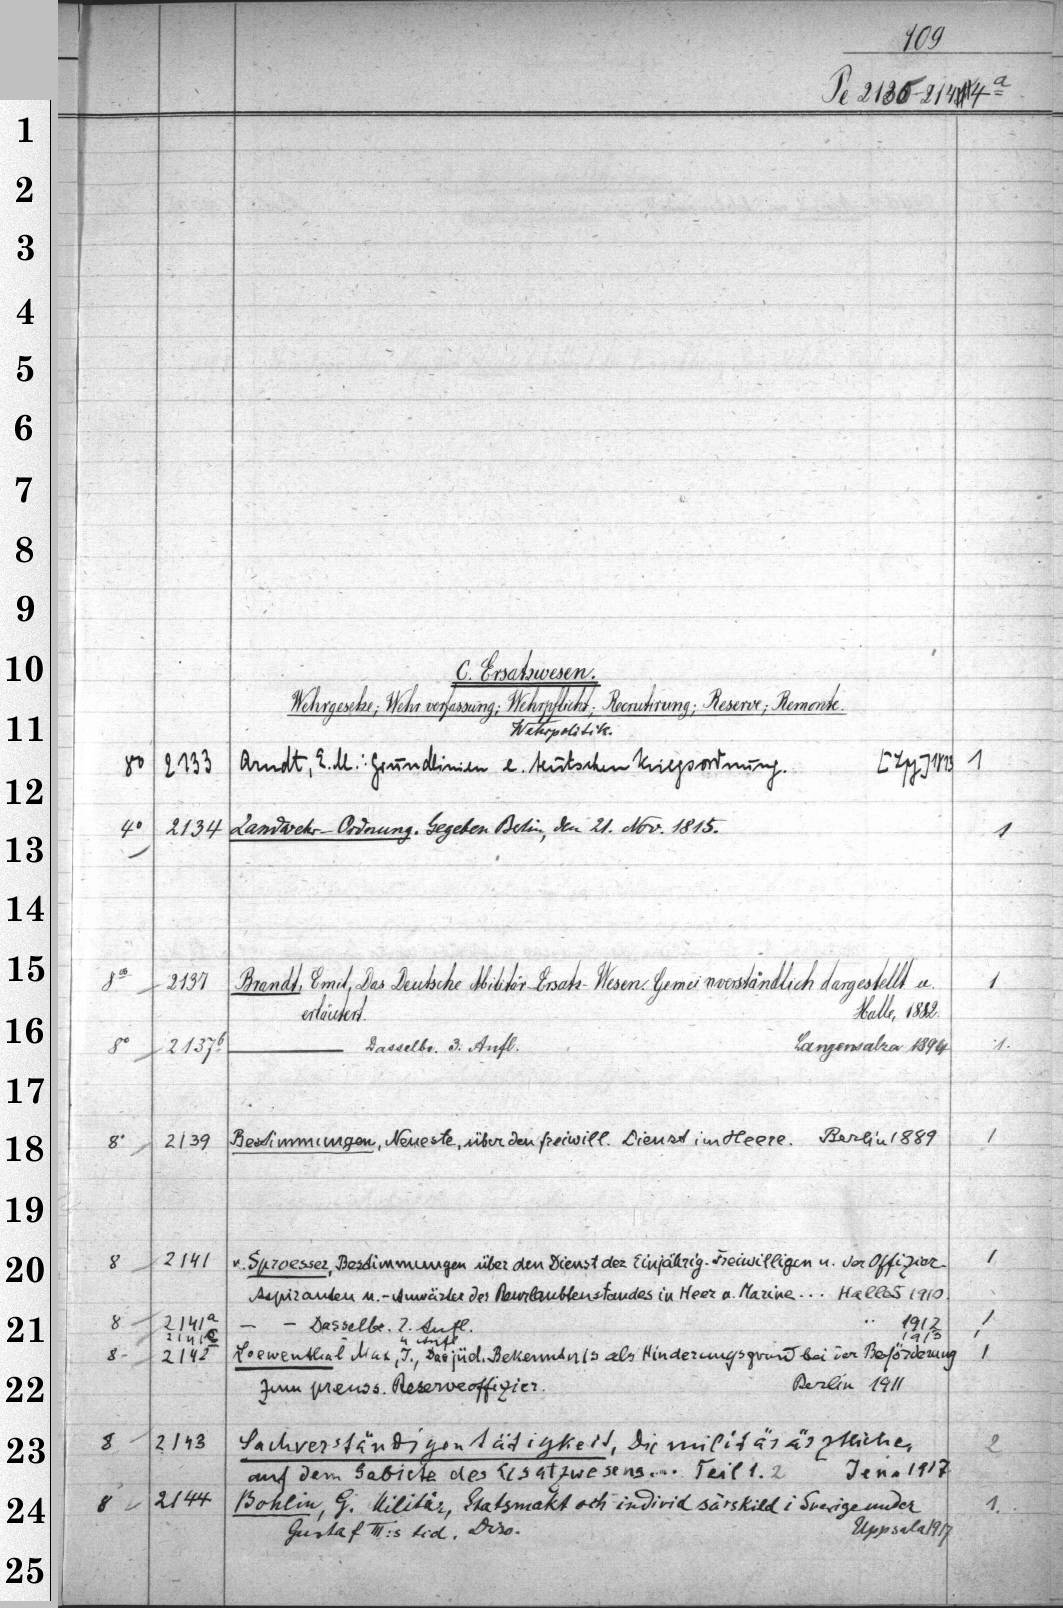 109
Pe 2135-2144a
1
2
3
4
5
6
7
8
9
10
C. Ersatzwesen.
Wehrgesetze; Wehrverfassung; Wehrpflicht; Recrutirung; Reserve; Remonte.
11
Wehrpolitik.
8o 2133 Arndt, E. M.: Grundlinien e. teutschen Kriegsordnung. [Lpz] 1813 1
12
4o 2134 Landwehr-Ordnung. Gegeben Berlin, den 21. Nov. 1815. 1
13
14
15
8o 2137 Brandt, Emil, Das Deutsche Militär-Ersatz-Wesen. Gemeinverständlich dargestellt u. 1
erläutert. Halle, 1882.
16
8o 2137b Dasselbe. 3. Aufl. Langensalza 1894 1.
17
18
8o 2139 Bestimmungen, Neueste, über den freiwill. Dienst im Heere. Berlin 1889 1
19
20
8 2141 v. Sproesser, Bestimmungen über den Dienst der Einjährig-Freiwilligen u. der Offizier- 1
Aspiranten u. -Anwärter des Beurlaubtenstandes in Heer u. Marine... Halle S 1910.
21
8 2141a — — Dasselbe. 2. Aufl. " 1912 1
2141c 4 Aufl 1913 1
8 2142 Loewenthal Max, J., Das jüd. Bekenntnis als Hinderungsgrund bei der Beförderung 1
22
zum preuss. Reserveoffizier. Berlin 1911
23
8 2143 Sachverständigentätigkeit, Die militärärztliche, 2
auf dem Gebiete des Ersatzwesens... Teil 1. 2 Jena 1917
24
8 2144 Bohlin, G. Militär, Statsmakt och individ särskild i Sverige under 1.
Gustaf III:s tid. Diss. Uppsala 1917
25